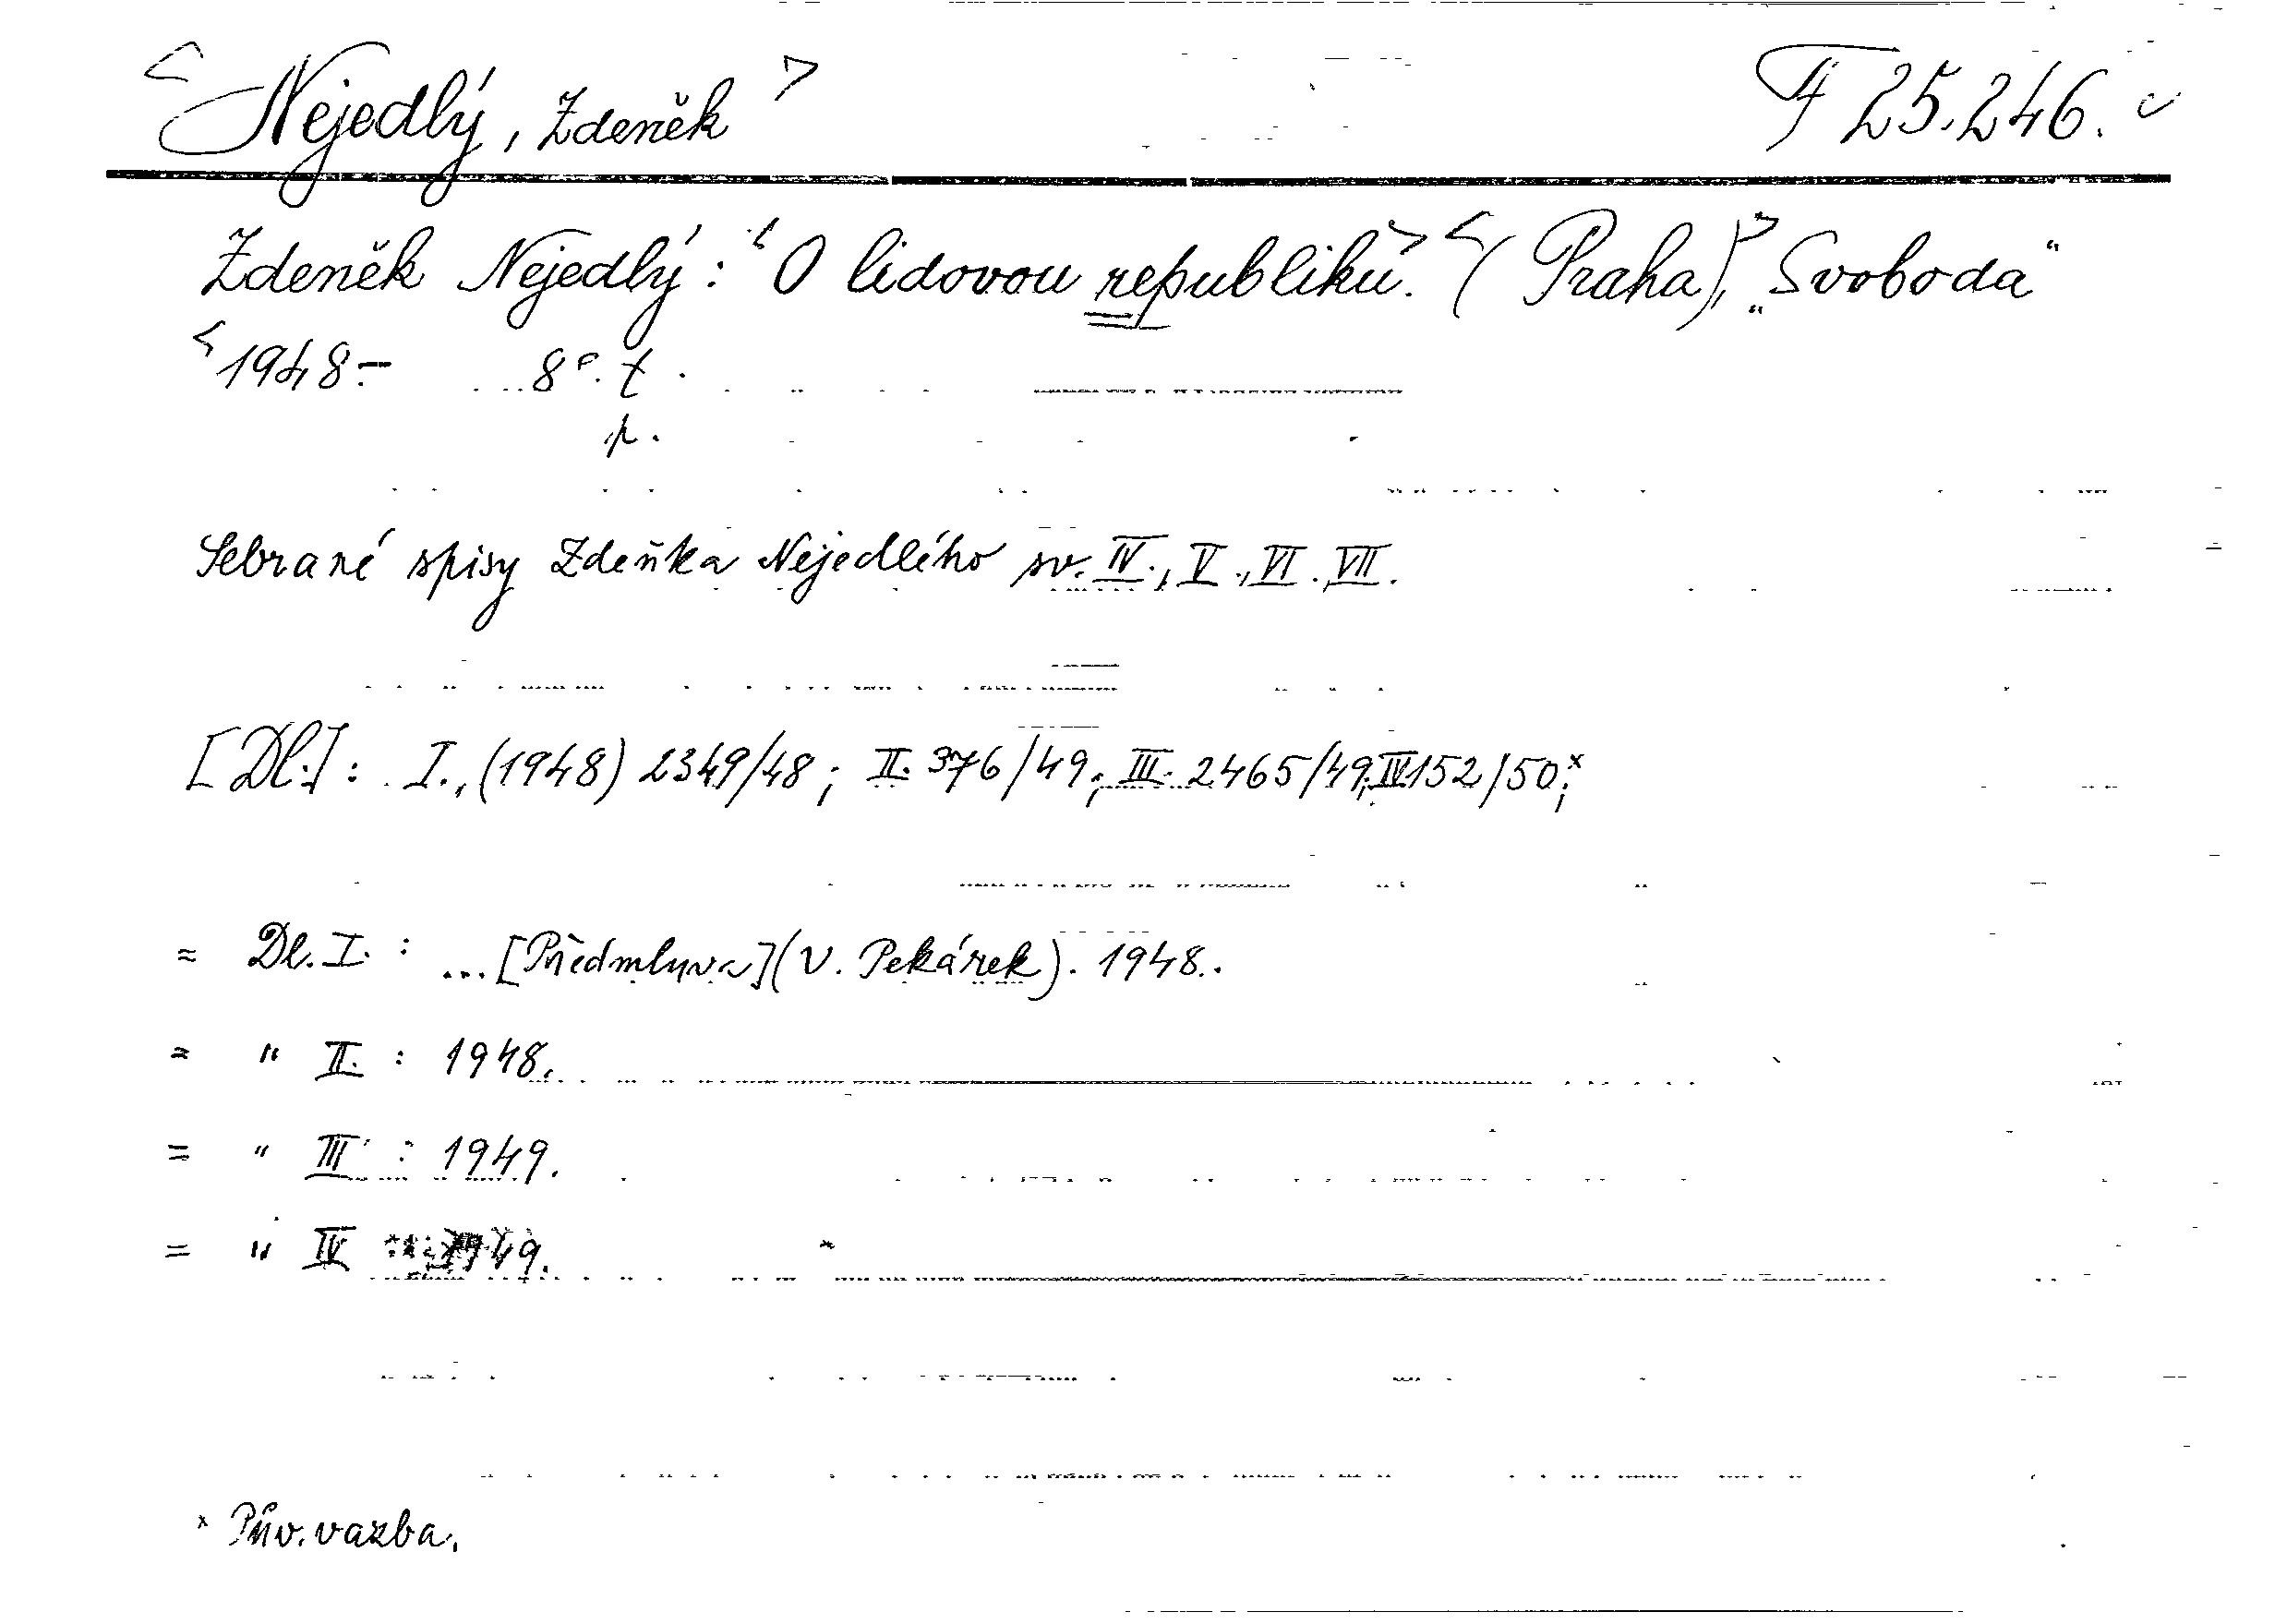 < Nejedlý, Zdeněk > F 25.246.
Zdeněk Nejedlý: < O lidovou republiku. > < (Praha), > „Svoboda“
< 1948.– 8°. t.
p.
Sebrané spisy Zdeňka Nejedlého sv. IV., V., VI. VII.
[Dl.]: I., (1948) 2349/48; II. 376/49; III. 2465/49; IV 152/50;x
= Dl. I. : ...[Předmluva](V. Pekárek). 1948.
= " II. : 1948.
= " III : 1949.
= " IV : 1949.
x Pův. vazba.